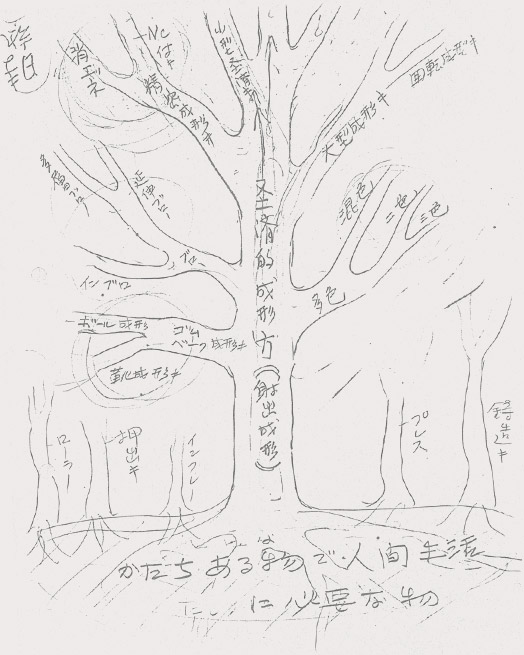 省エネ
NCは
精密成形キ
小型
大型成形キ
回転成型キ
延伸ブロー
ブロー
インブロ
混色
二色
三色
多色
ボール成形
ゴム
ベーク成形キ
成形キ
経済的成形方(射出成形)
ローラー
押出キ
インフレー
プレス
鋳造キ
かたちある物で人間生活
に必要な物